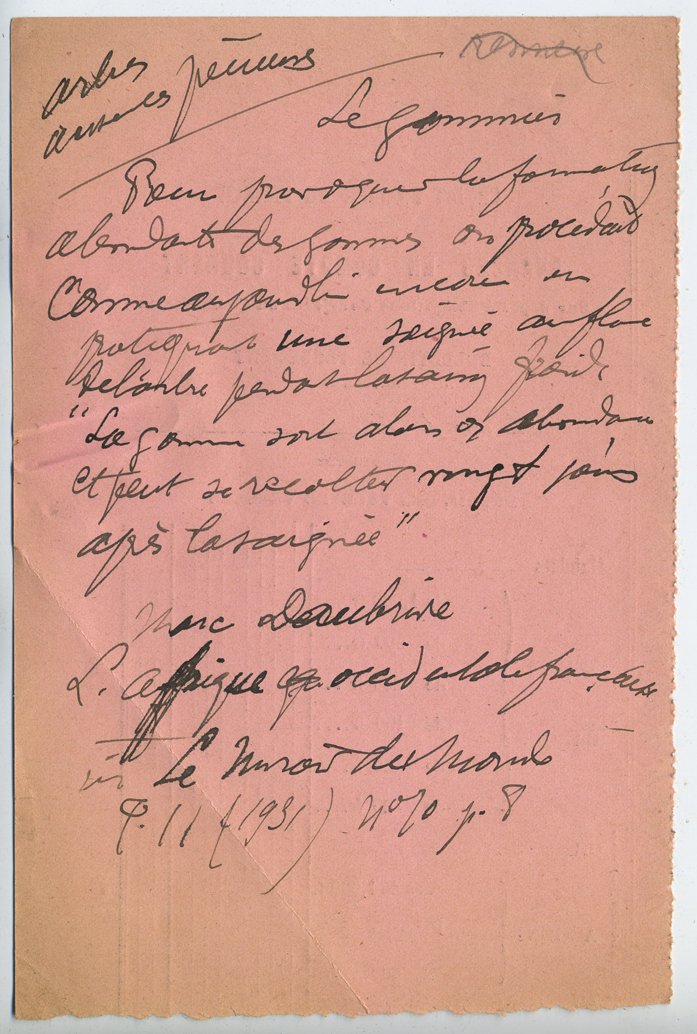 arbres
Le gommier
Pour provoquer la formation
abondante des gommes on procédait
comme aujourd'hui encore en
pratiquant une saignée au flanc
de l'arbre pendant la saison froide
"La gomme sort alors en abondance
et peut se récolter vingt jours
après la saignée"
Marc Daubrive
L'afrique occidentale française
in Le Miroir du Monde
T. II (1931) n° 70 p. 8